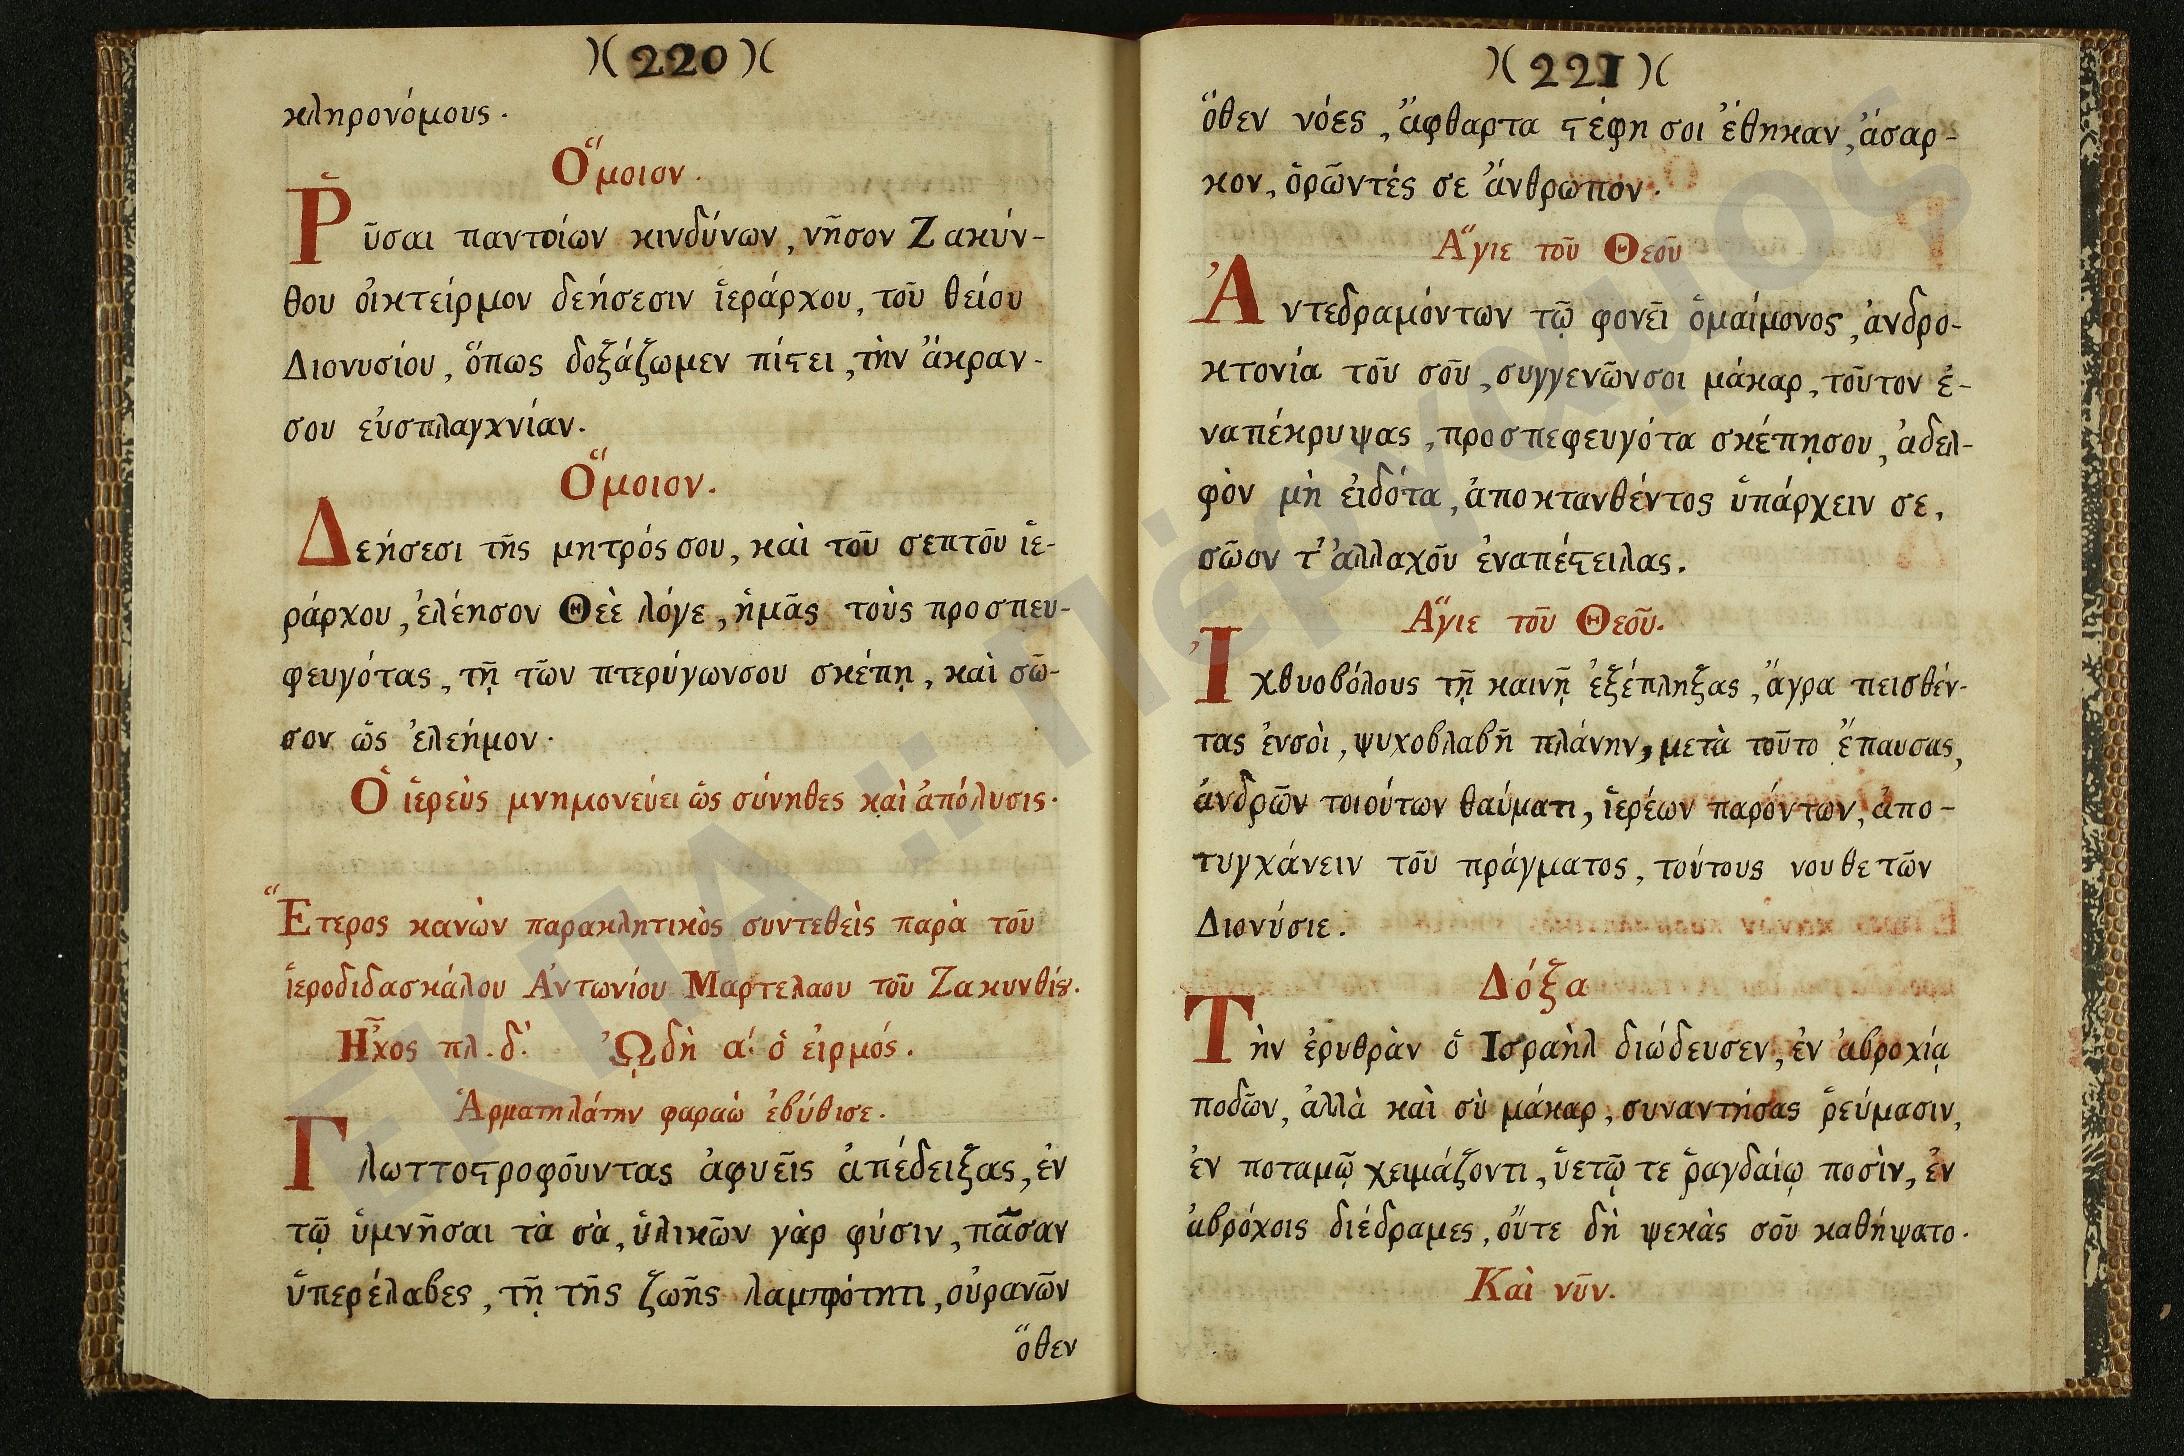 )( 220 )(
κληρονόμους.
Ὅμοιον.
Ῥῦσαι παντοίων κινδύνων, νῆσον Ζακύν-
θου οἰκτείρμον δεήσεσιν ἱεράρχου, τοῦ θείου
Διονυσίου, ὅπως δοξάζωμεν πίϛει, τὴν ἄκραν-
σου εὐσπλαγχνίαν.
Ὅμοιον.
Δεήσεσι τῆς μητρός σου, καὶ τοῦ σεπτοῦ ἱε-
ράρχου, ἐλέησον Θεὲ λόγε, ἡμᾶς τοὺς προσπευ-
φευγότας, τῇ τῶν πτερύγωνσου σκέπῃ, καὶ σῶ-
σον ὡς ἐλεήμον.
Ὁ ἱερεὺς μνημονεύει ὡς σύνηθες καὶ ἀπόλυσις.
Ἕτερος κανὼν παρακλητικὸς συντεθεὶς παρὰ τοῦ
ἱεροδιδασκάλου Ἀντωνίου Μαρτελαου τοῦ Ζακυνθίȣ.
Ἦχος πλ. δ΄. ᾨδὴ α΄. ὁ εἱρμός.
Ἁρματηλάτην φαραὼ ἐβύθισε.
Γλωττοϛροφοῦντας ἀφυεῖς ἀπέδειξας, ἐν
τῷ ὑμνῆσαι τὰ σὰ, ὑλικῶν γὰρ φύσιν, πᾶσαν
ὑπερέλαβες, τῇ τῆς ζωῆς λαμπρότητι, οὐρανῶν
ὅθεν
)( 221 )(
ὅθεν νόες, ἄφθαρτα ϛέφη σοι ἔθηκαν, ἄσαρ-
κον, ὁρῶντές σε ἄνθρωπον.
Ἅγιε τοῦ Θεοῦ
Ἀντεδραμόντων τῷ φονεῖ ὁμαίμονος, ἀνδρο-
κτονία τοῦ σοῦ, συγγενῶνσοι μάκαρ, τοῦτον ἐ-
ναπέκρυψας, προσπεφευγότα σκέπῃσου, ἀδελ-
φὸν μὴ εἰδότα, ἀποκτανθέντος ὑπάρχειν σε,
σῶον τ' ἀλλαχοῦ ἐναπέϛειλας.
Ἅγιε τοῦ Θεοῦ.
Ἰχθυοβόλους τῇ καινῇ ἐξέπληξας, ἄγρα πεισθέν-
τας ἐνσοὶ, ψυχοβλαβῆ πλάνην, μετὰ τοῦτο ἔπαυσας,
ἀνδρῶν τοιούτων θαύματι, ἱερέων παρόντων, ἀπο-
τυγχάνειν τοῦ πράγματος, τούτους νουθετῶν
Διονύσιε.
Δόξα
Τὴν ἐρυθρὰν ὁ Ἰσραὴλ διώδευσεν, ἐν ἀβροχίᾳ
ποδῶν, ἀλλὰ καὶ σὺ μάκαρ, συναντήσας ῥεύμασιν,
ἐν ποταμῷ χειμάζοντι, ὑετῷ τε ῥαγδαίῳ ποσὶν, ἐν
ἀβρόχοις διέδραμες, οὔτε δὴ ψεκὰς σοῦ καθήψατο.
Καὶ νῦν.
ΕΚΠΑ :: Πέργαμος